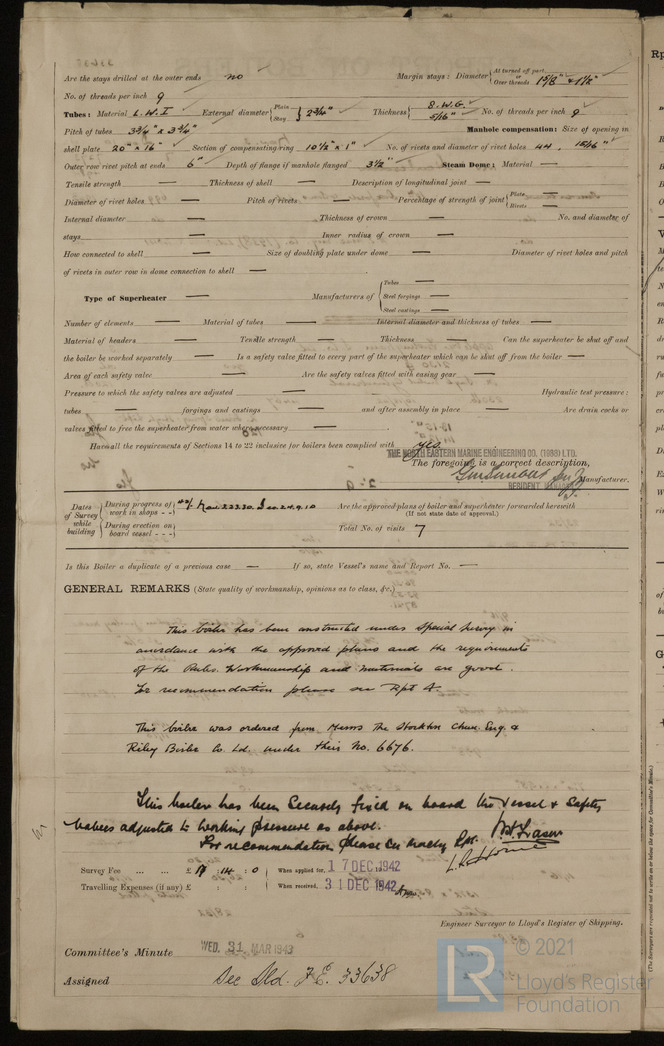 Are the stays drilled at the outer ends no Margin stays: Diameter { At turned off part, Over threads 1 5/8" & 1 1/2"
No. of threads per inch 9
Tubes: Material L.W.I External diameter { Plain Stay } 2 3/4" Thickness { 8.W.G. 5/16" No. of threads per inch 9
Pitch of tubes 3 3/4" x 3 3/4" Manhole compensation: Size of opening in
shell plate 20" x 16" Section of compensating ring 10 1/2" x 1" No. of rivets and diameter of rivet holes 44, 15/16"
Outer row rivet pitch at ends 6" Depth of flange if manhole flanged 3 1/2" Steam Dome: Material —
Tensile strength — Thickness of shell — Description of longitudinal joint —
Diameter of rivet holes — Pitch of rivets — Percentage of strength of joint { Plate — Rivets —
Internal diameter — Thickness of crown — No. and diameter of
stays — Inner radius of crown —
How connected to shell — Size of doubling plate under dome — Diameter of rivet holes and pitch
of rivets in outer row in dome connection to shell —
Type of Superheater — Manufacturers of { Tubes — Steel forgings — Steel castings —
Number of elements — Material of tubes — Internal diameter and thickness of tubes —
Material of headers — Tensile strength — Thickness — Can the superheater be shut off and
the boiler be worked separately — Is a safety valve fitted to every part of the superheater which can be shut off from the boiler —
Area of each safety valve — Are the safety valves fitted with easing gear —
Pressure to which the safety valves are adjusted — Hydraulic test pressure:
tubes — forgings and castings — and after assembly in place — Are drain cocks or
valves fitted to free the superheater from water where necessary —
Have all the requirements of Sections 14 to 22 inclusive for boilers been complied with yes.
THE NORTH EASTERN MARINE ENGINEERING CO. (1938) LTD.
The foregoing is a correct description,
RESIDENT MANAGER Manufacturer.
Dates of Survey while building { During progress of work in shops - - 1942 Nov. 23.30. Dec. 2.4.9.10 Are the approved plans of boiler and superheater forwarded herewith (If not state date of approval.)
During erection on board vessel - - - Total No. of visits 7
Is this Boiler a duplicate of a previous case — If so, state Vessel's name and Report No. —
GENERAL REMARKS (State quality of workmanship, opinions as to class, &c.)
This boiler has been constructed under Special Survey in
accordance with the approved plans and the requirements
of the Rules. Workmanship and materials are good.
For recommendation please see Rpt 4.
This boiler was ordered from Messrs The Stockton Chem. Eng. &
Riley Boiler Co. Ltd. under their No. 6676.
This boiler has been Securely fixed on board the vessel & Safety
valves adjusted to working pressure as above.
For recommendation please see Rpt.
Survey Fee ... ... £ 14 : 0 When applied for, 17 DEC 1942
Travelling Expenses (if any) £ : : When received, 31 DEC 1942
Engineer Surveyor to Lloyd's Register of Shipping.
Committee's Minute WED. 31 MAR 1943
Assigned See Sld. F.E. 33638
© 2021
Lloyd's Register
Foundation